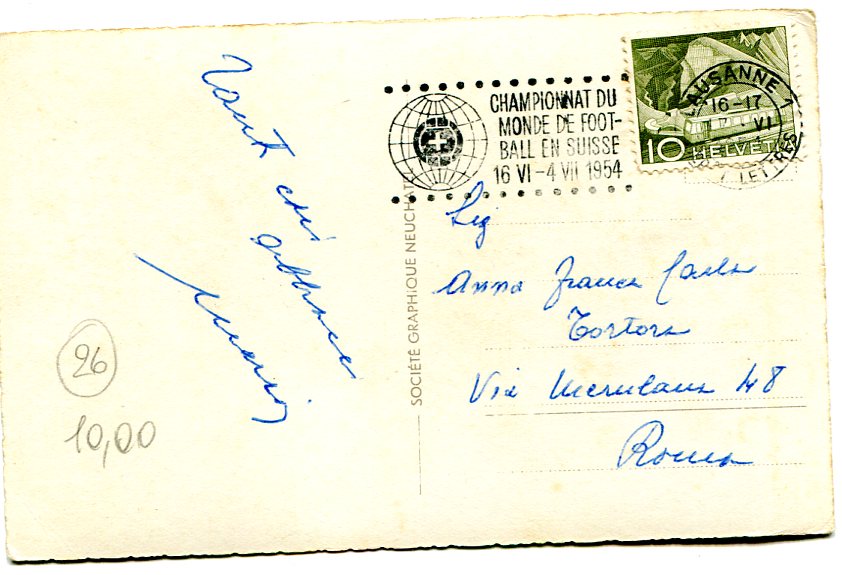 Tanti cari
abbracci
CHAMPIONNAT DU
MONDE DE FOOT-
BALL EN SUISSE
16 VI-4 VII 1954
LAUSANNE 1
16-17
VI
LETTRES
10 HELVETIA
SOCIÉTÉ GRAPHIQUE NEUCHATEL
Sig
Anna Franca Carla
Tortora
Via Merulana 48
Roma
26
10,00